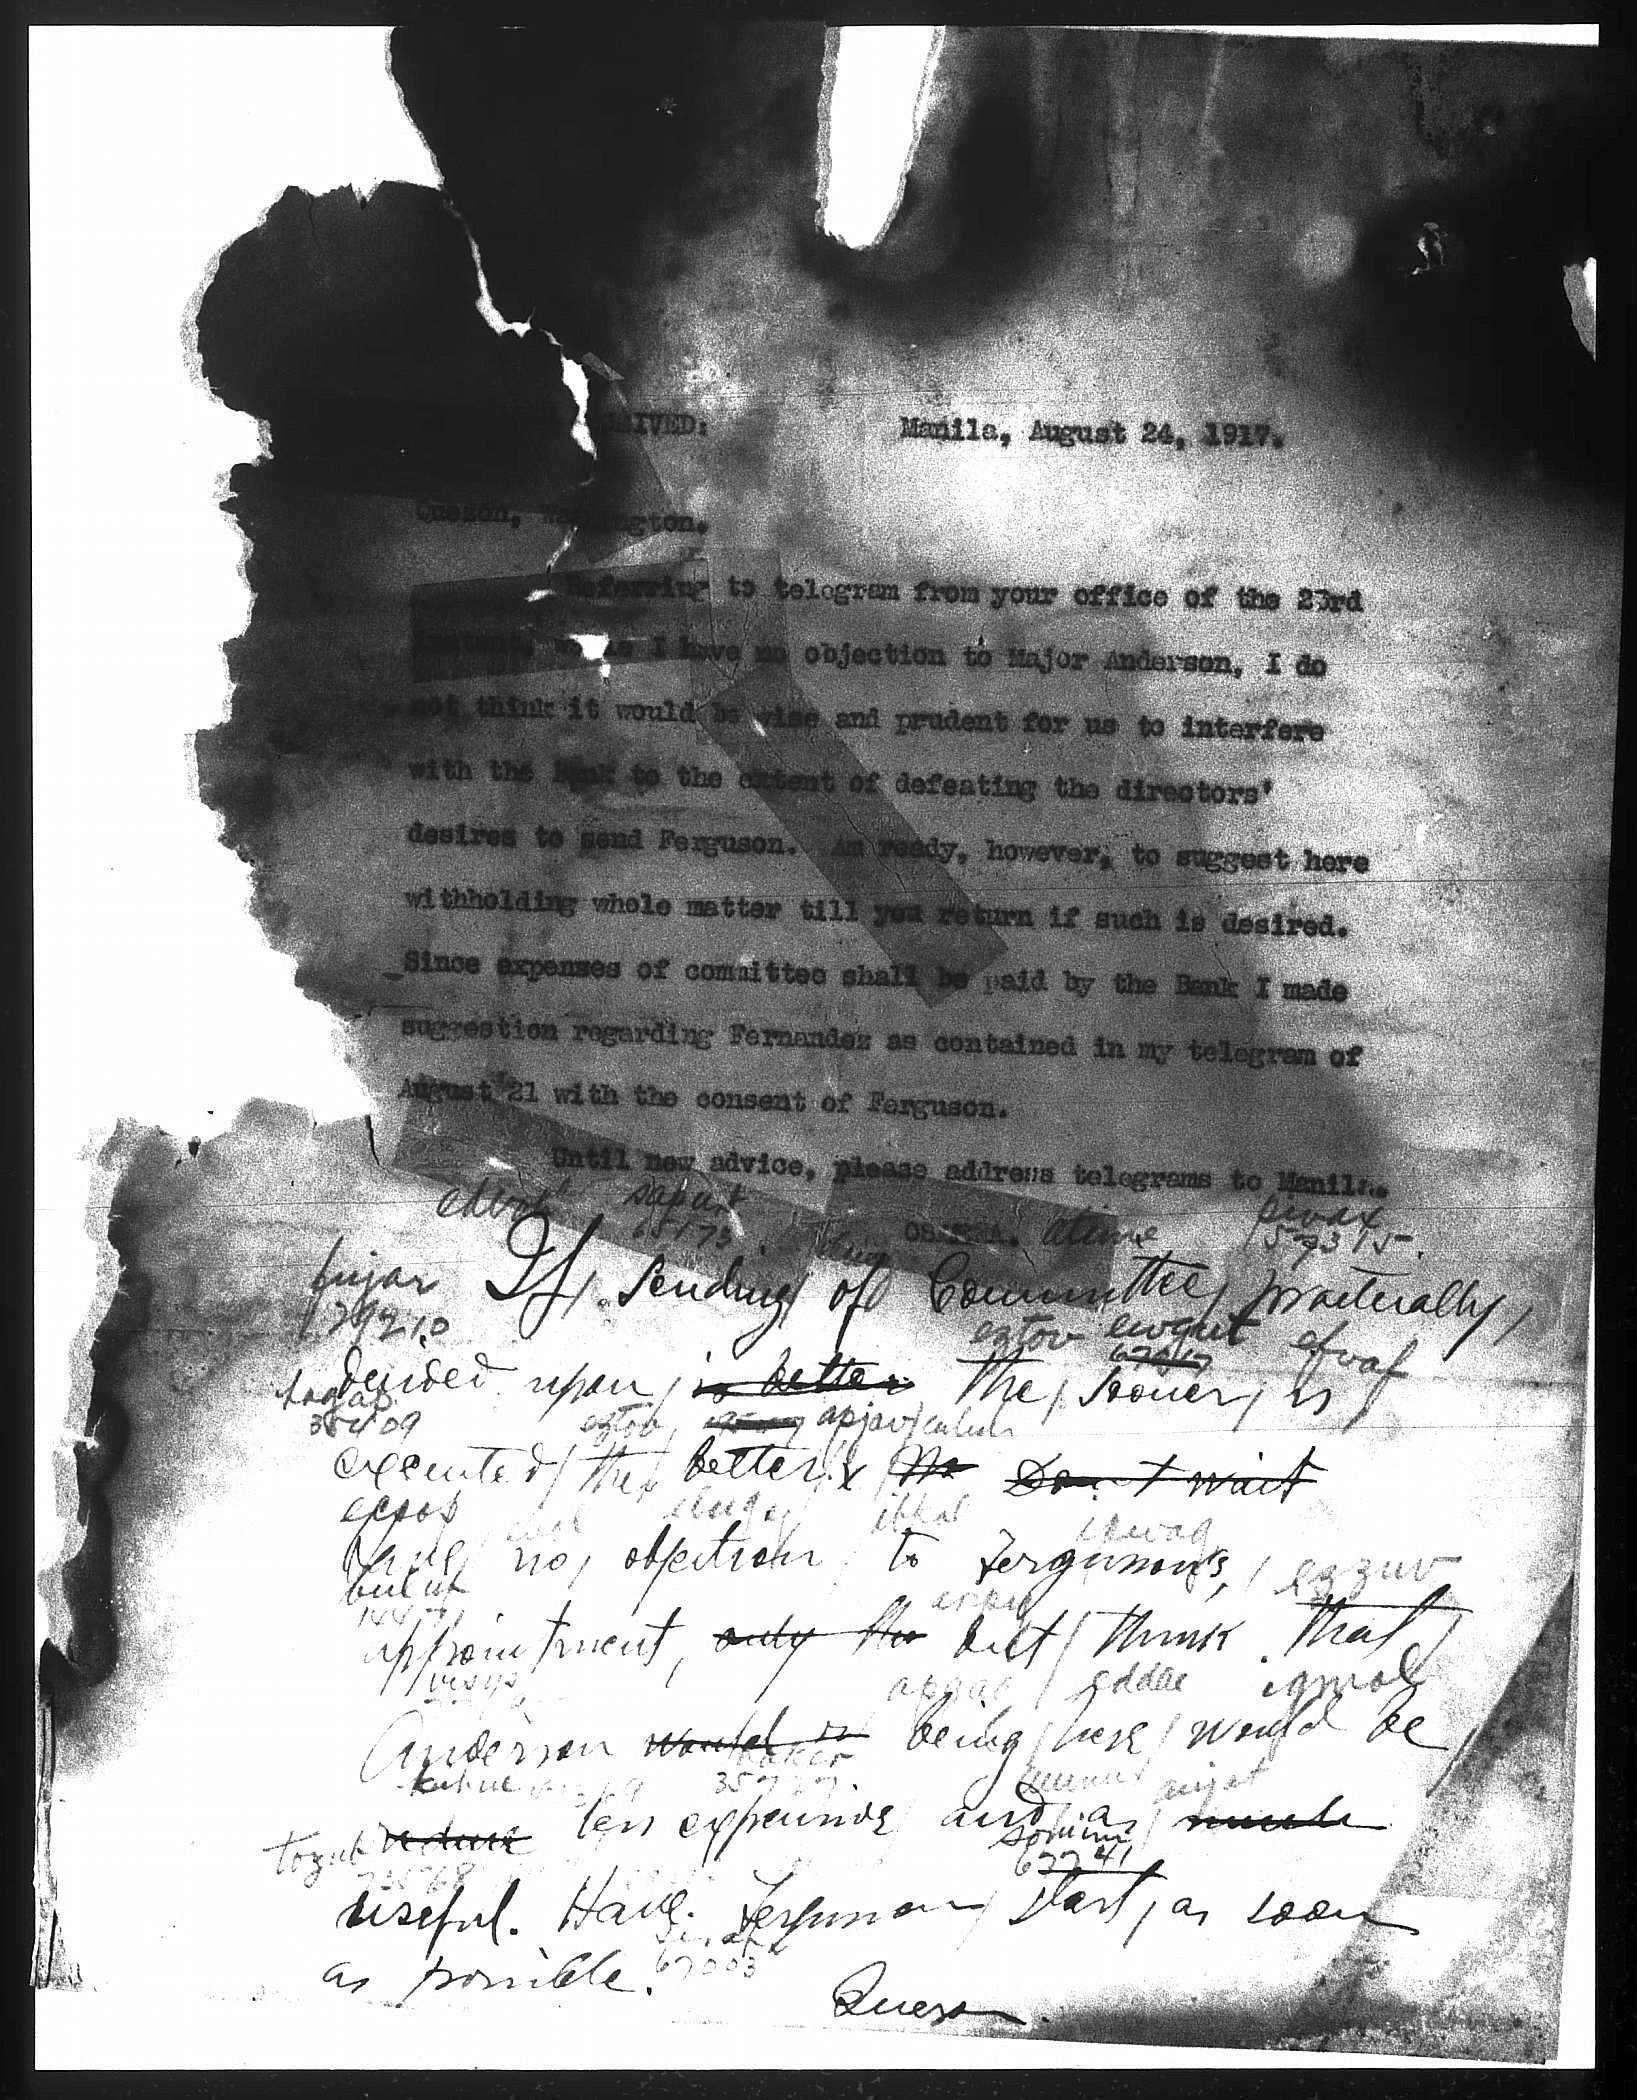 EIVED: Manila, August 24, 1917.
Quezon, Washington.
Referring to telegram from your office of the 23rd
instant, while I have no objection to Major Anderson, I do
not think it would be wise and prudent for us to interfere
with the Bank to the extent of defeating the directors'
desires to send Ferguson. Am ready, however, to suggest here
withholding whole matter till you return if such is desired.
Since expenses of committee shall be paid by the Bank I made
suggestion regarding Fernandez as contained in my telegram of
August 21 with the consent of Ferguson.
Until new advice, please address telegrams to Manila.
saput
65173
OSMEÑA.
ewax
57315
bujar
If sending of Committee practically
29210
eztov ewgut efwaf
decided upon is better the sooner is
35409
eztov apjav
executed the better. Don't wait
Have no objection to Ferguson's
ezzuv
appointment, only the but think that
apgac eddae igmol
Anderson would being here would be
35727
less expensive and as much
tozut
somim
67741
useful. Have Ferguson start as soon
as possible.
67003
Quezon